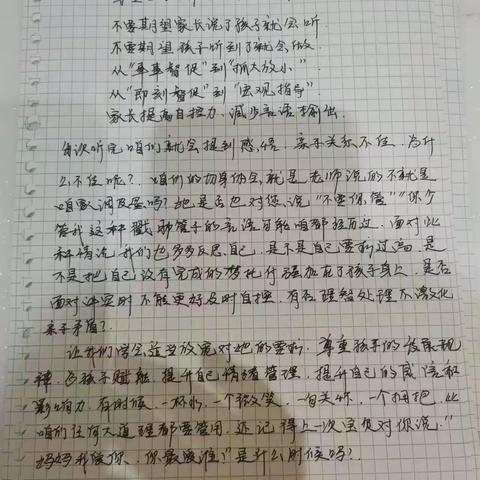 不要期望家长说了孩子就会听
不要期望孩子听到了就会做
从“事事督促”到“抓大放小”.
从“即刻督促”到“宏观指导”.
家长提高自控力,减少言语输出.
每次听完咱们就会提到感悟.亲子关系不佳,为什
么不佳呢?咱们的切身体会就是老师说的不就是
咱家调皮蛋吗?她是否也对你说“不要你管”“你少
管我”这种戳肺管子的言语可能咱都经历过.面对此
种情况我们也多多反思自己,是不是自己要求过高,是
不是把自己没有完成的梦托付强加在了孩子身上,是否
面对冲突时不能更好及时自控,有否理智处理不激化
亲子矛盾?
让我们学会适当放宽对她的要求,尊重孩子的发展规
律,为孩子赋能,提升自己情绪管理,提升自己的威信和
影响力,有时候,一杯水,一个微笑,一句关怀,一个拥抱,比
咱们任何大道理都要管用,还记得上一次宝贝对你说:“
妈妈我爱你,你最爱谁?”是什么时候吗?